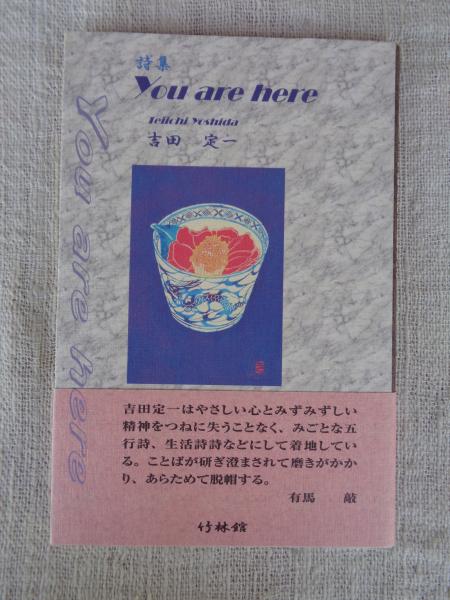 詩集
You are here
Teiichi Yoshida
吉田 定一
You are here
吉田定一はやさしい心とみずみずしい
精神をつねに失うことなく、みごとな五
行詩、生活詩詩などにして着地してい
る。ことばが研ぎ澄まされて磨きがかか
り、あらためて脱帽する。
有馬 敲
竹林館